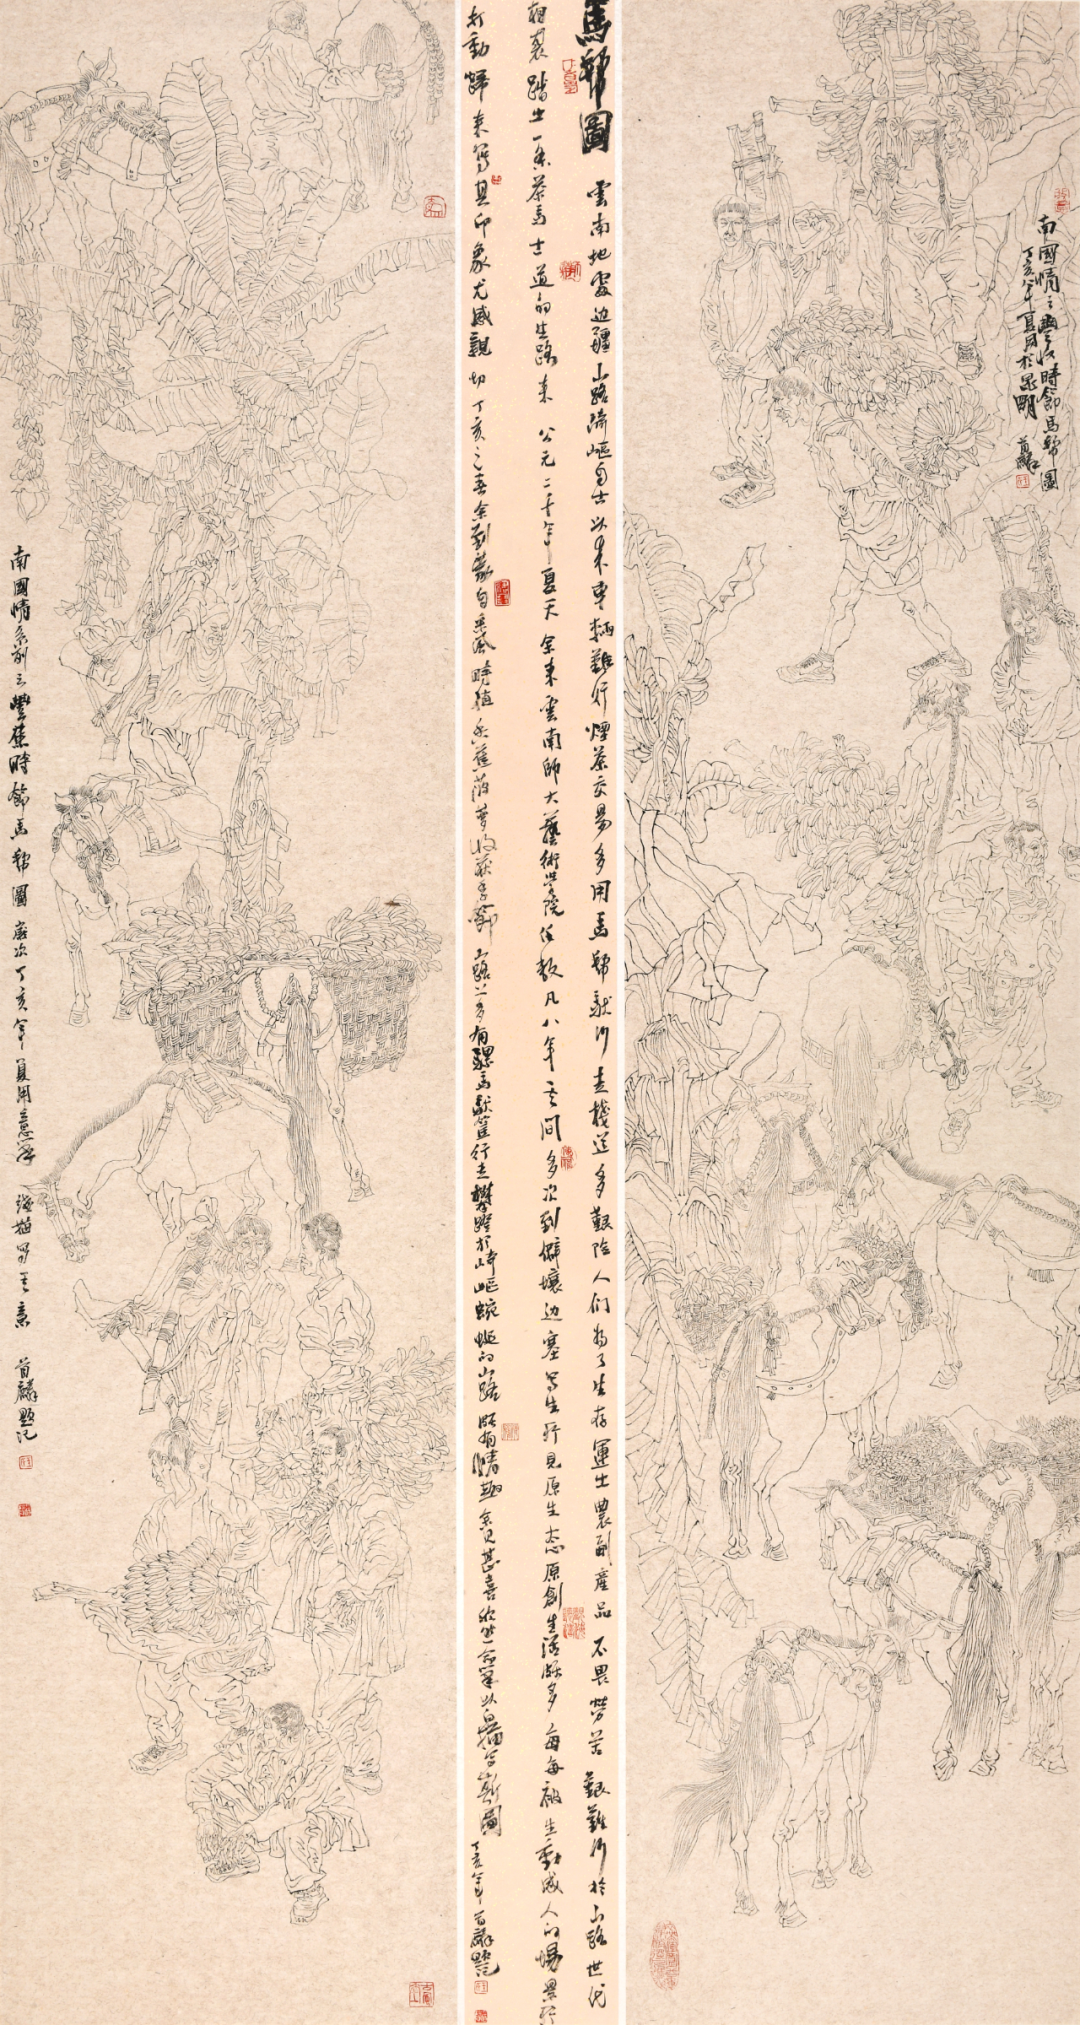 馬幫圖
雲南地處边疆山路崎嶇自古以来車輛難行煙茶交易多用馬幫馱行走棧道多艱险人们為了生存運出農副產品不畏勞苦艱難行於山路世代
相襲踏出一条茶馬古道的生路来公元二千年夏天余来雲南師大藝術学院任教凡八年之间多次到僻壤边塞写生所見原生态原創生活頗多每每被生動感人的場景所
打動歸来寫其印象尤感親切丁亥之春余到蒙自采風時值香蕉菠萝收获季節山路上多有騾馬馱筐行走攀蹬於崎嶇蜿蜒的山路頗有情趣余见甚喜欣然命筆以白描写斯圖
丁亥年首麟題記
南國情之豐收時節馬幫圖
丁亥年夏月於昆明
首麟
南國情系列之豐蕉時節馬幫圖歲次丁亥年夏用意筆線描寫其意
首麟題记